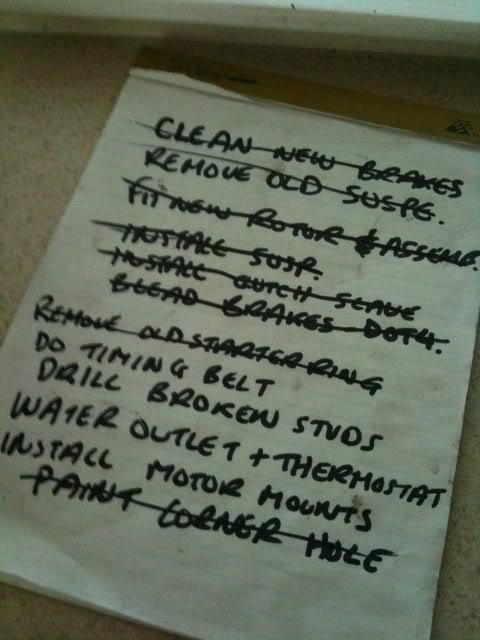 CLEAN NEW BRAKES
REMOVE OLD SUSPE.
FIT NEW ROTOR & ASSEMB.
INSTALL SUSP.
INSTALL CUTCH SLAVE
BLEAD BRAKES DOT4.
REMOVE OLD STARTER RING
DO TIMING BELT
DRILL BROKEN STUDS
WATER OUTLET + THERMOSTAT
INSTALL MOTOR MOUNTS
PAINT CORNER HOLE